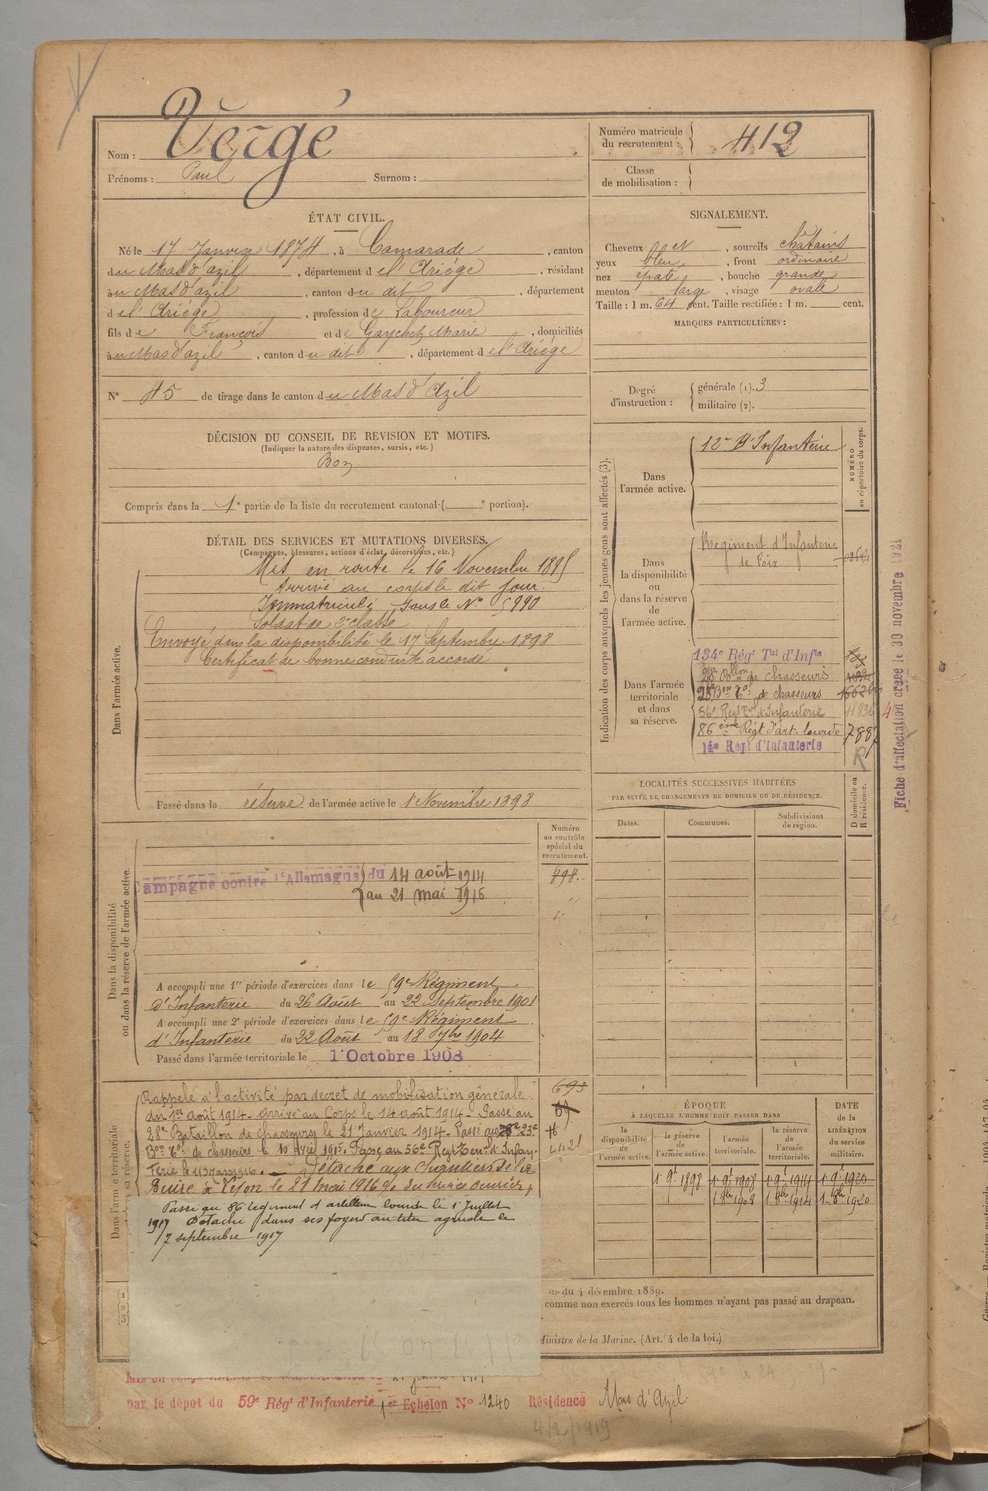 Nom : Vergé
Prénoms : Paul Surnom :
Numéro matricule
du recrutement : 412
Classe
de mobilisation :
ÉTAT CIVIL.
Né le 17 Janvier 1874, à Camarade, canton
du Mas d'azil, département de l'Ariége, résidant
au Mas d'azil, canton du dit, département
de l'Ariége, profession de Laboureur
fils de François et de Gaychet Marie, domiciliés
au Mas d'azil, canton du dit, département de l'Ariége
N° 45 de tirage dans le canton du Mas d'Azil
DÉCISION DU CONSEIL DE REVISION ET MOTIFS.
(Indiquer la nature des dispenses, sursis, etc.)
Bon
Compris dans la 1e partie de la liste du recrutement cantonal ( e portion).
SIGNALEMENT.
Cheveux et, sourcils châtains
yeux bleu, front ordinaire
nez épaté, bouche grande
menton large, visage ovale
Taille : 1 m. 64 cent. Taille rectifiée : 1 m. cent.
MARQUES PARTICULIÈRES :
Degré
d'instruction :
générale (1). 3
militaire (2).
DÉTAIL DES SERVICES ET MUTATIONS DIVERSES.
(Campagnes, blessures, actions d'éclat, décorations, etc.)
Dans l'armée active.
Mis en route le 16 Novembre 1895
Arrivé au corps le dit jour.
Immatriculé sous le N° 5990
Soldat de 2e classe
Envoyé dans la disponibilité le 17 Septembre 1898
Certificat de bonne conduite accordé
Passé dans la réserve de l'armée active le 1 Novembre 1898
Indication des corps auxquels les jeunes gens sont affectés (3).
NUMÉRO
au répertoire du corps.
Dans
l'armée active.
12e Rt Infanterie
Dans
la disponibilité
ou
dans la réserve
de
l'armée active.
Régiment d'Infanterie
de Foix
Dans l'armée
territoriale
et dans
sa réserve.
134e Régt Tal d'Infie
28e Bllon de chasseurs
23 Bon Tal de chasseurs
56e Regt Tal d'Infanterie
86ème Régt d'art. lourde 7887
14e Regt d'Infanterie
R
Fiche d'affectation créée le 30 novembre 1921
LOCALITÉS SUCCESSIVES HABITÉES
PAR SUITE DE CHANGEMENTS DE DOMICILE OU DE RÉSIDENCE.
Dates. Communes. Subdivisions
de région.
D domicile ou
R résidence.
Dans la disponibilité
ou dans la réserve de l'armée active.
Numéro
au contrôle
spécial du
recrutement.
498.
Campagne contre l'Allemagne du 14 août 1914
au 21 mai 1916
A accompli une 1re période d'exercices dans le 59e Régiment
d'Infanterie du 26 Août au 22 Septembre 1901
A accompli une 2e période d'exercices dans le 59e Régiment
d'Infanterie du 22 Août au 18 7bre 1904
Passé dans l'armée territoriale le 1 Octobre 1908
Dans l'armée territoriale
et dans sa réserve.
Rappelé à l'activité par décret de mobilisation générale
du 1er août 1914. Arrivé au Corps le 14 août 1914. Passé au
28e Bataillon de Chasseurs le 21 Janvier 1914. Passé au 23e
Bon Tal de chasseurs le 10 Avril 1915. Passé au 56e Regt Terr d'Infan-
terie
Détaché aux Chantiers de la
Buire à Lyon le 21 mai 1916 % du service ouvrier,
Passé au 86 régiment d'artillerie lourde le 1 Juillet
1917 Détaché dans ses foyers au titre agricole le
7 septembre 1917
693
ÉPOQUE
À LAQUELLE L'HOMME DOIT PASSER DANS
DATE
de la
LIBÉRATION
du service
militaire.
la
disponibilité
de
l'armée active.
la
réserve de
l'armée active.
l'armée
territoriale.
la
réserve de
l'armée
territoriale.
1 9e 1898 1 9e 1908 1 9e 1914 1 9e 1920
1 8bre 1908 1 8bre 1914 1 8bre 1920
du 4 décembre 1889.
comme non exercés tous les hommes n'ayant pas passé au drapeau.
Ministre de la Marine. (Art. 4 de la loi.)
par le dépôt du 59e Régt d'Infanterie 1er Echelon N° 1240 Résidence Mas d'Azil
4/2/1919